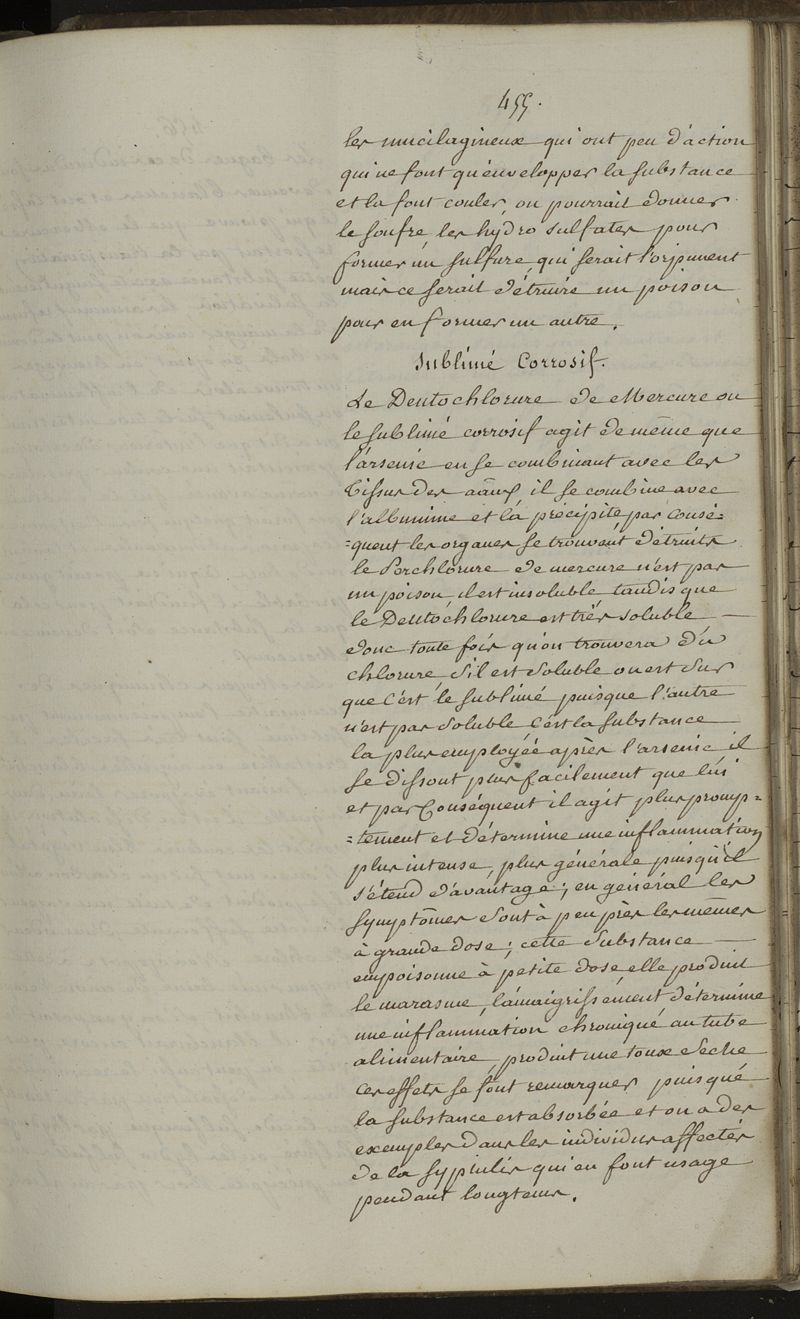 455.
les mucilagineux qui ont peu d'action
qui ne font qu'envelopper la substance
et la font couler, on pourrait donner
le soufre les hydro sulfates pour
former un sulfure, qui serait l'orpiment
mais ce serait détruire un poison
pour en former un autre.
Sublimé Corrosif.
Le Deutochlorure de Mercure ou
le sublimé corrosif agit de même que
l'arsenic en se combinant avec les
Tissus des il se combine avec
l'albumine et la précipite par consé=
=quent les organes se trouvent détruits
le Perchlorure de mercure n'est pas
un poison il est insoluble tandis que
le Deutochlorure est très soluble —
donc toute fois qu'on trouvera du
chlorure, s'il est soluble on est sur
que c'est le sublimé puisque l'autre
n'est pas soluble c'est la substance
la plus employée après l'arsenic, il
se dissout plus facilement que lui
et par Conséquent il agit plus promp=
=tement et détermine une inflammation
plus intense, plus générale puisqu'il
s'étend d'avantage; en général les
symptômes sont à peu près les mêmes
à grande dose; cette substance —
empoisonne à petite dose elle produit
le marasme, l'amaigrissement détermine
une inflammation chronique au tube
alimentaire, produit une toux seche
ces effets se font remarquer puisque
la substance est absorbée et on a des
exemples dans les individus affectés
de la syphilis qui en font usage
pendant longtems.